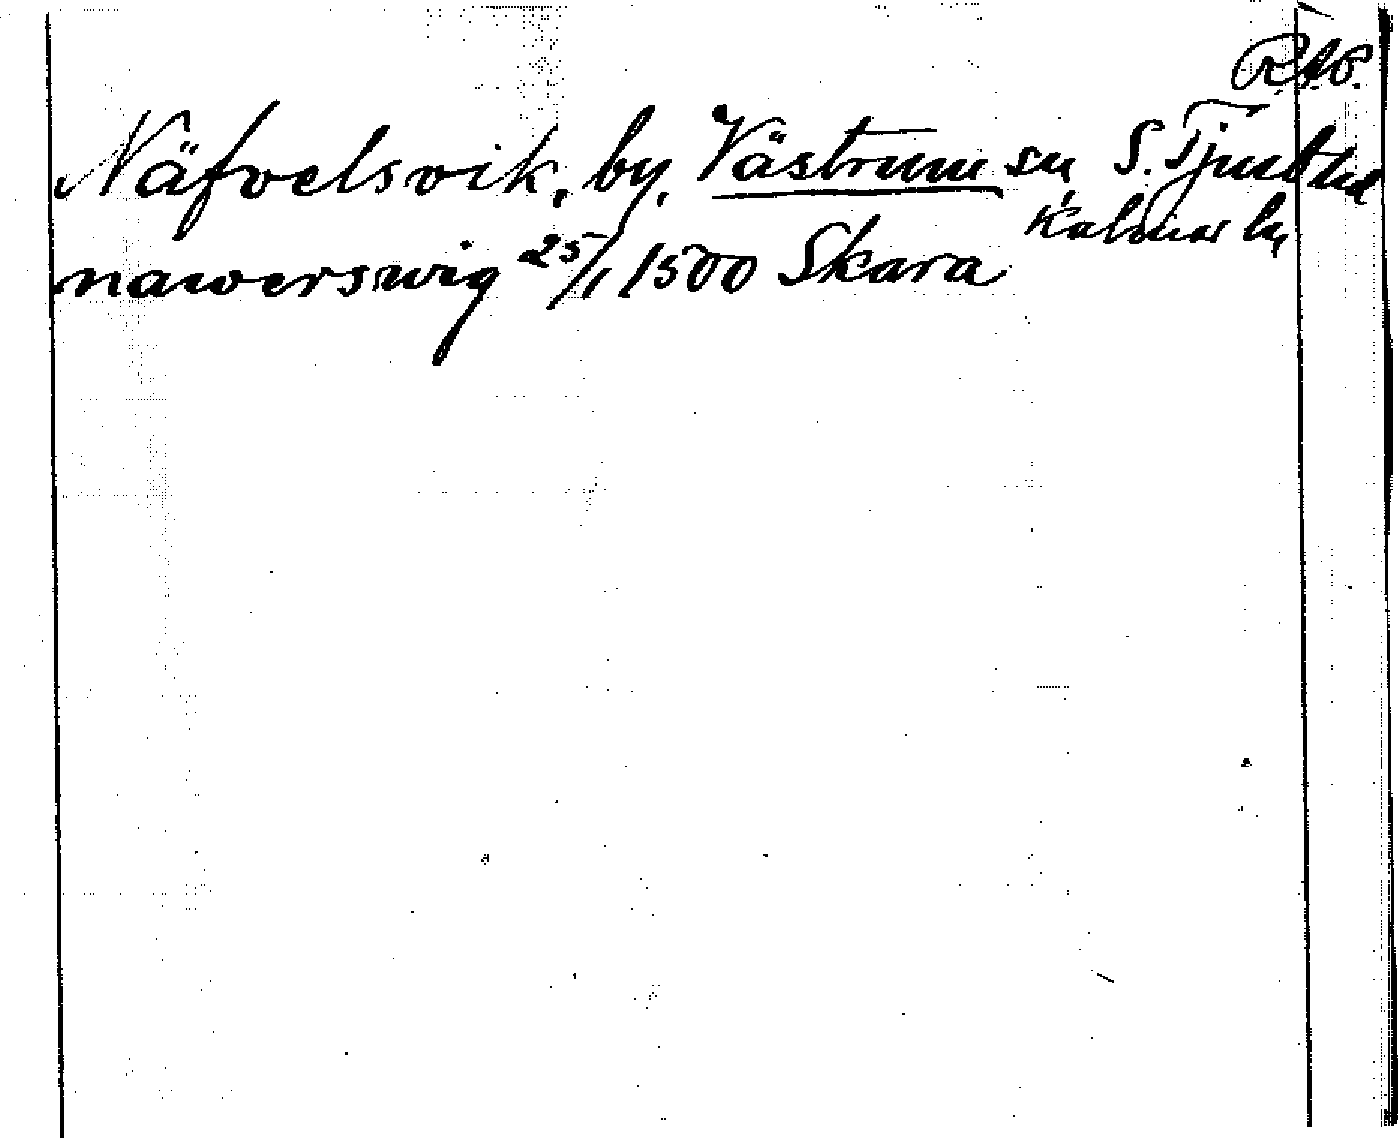 RAP.
Näfvelsvik, by, Västrum sn S. Tjust hd
Kalmar ln
nawerswig 25/1 1500 Skara